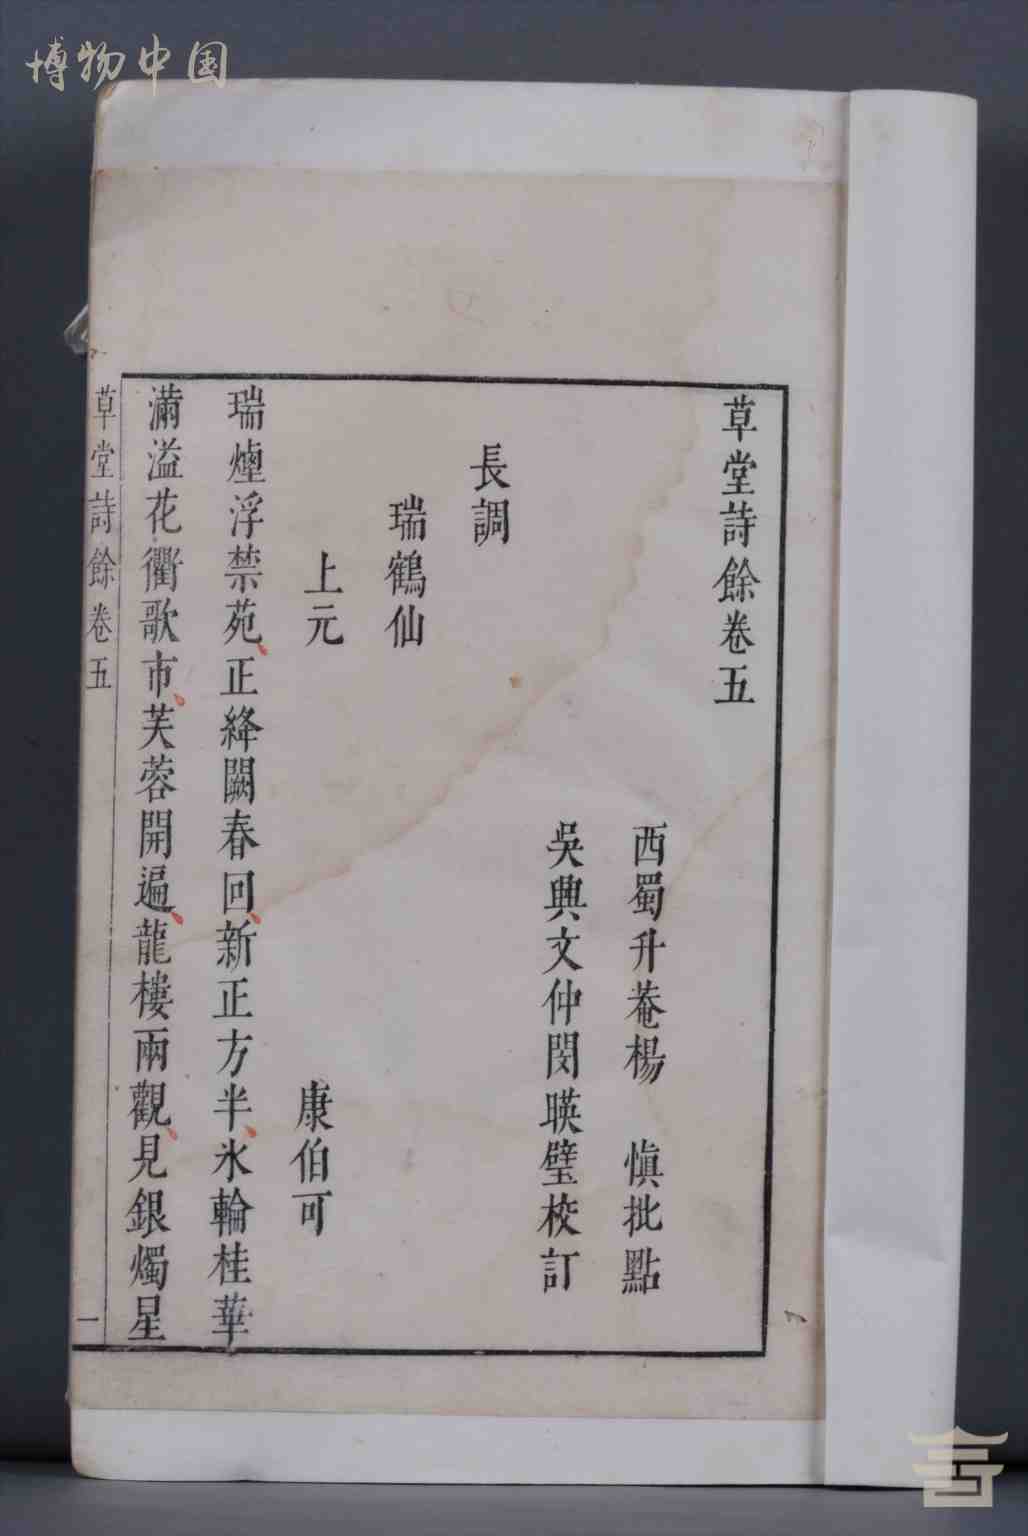 博物中国
草堂詩餘卷五
西蜀升菴楊　慎批點
吳興文仲閔暎璧校訂
長調
瑞鶴仙
上元
康伯可
瑞煙浮禁苑、正絳闕春回、新正方半、氷輪桂華
滿溢花衢歌市、芙蓉開遍、龍樓兩觀、見銀燭星
草堂詩餘卷五
一